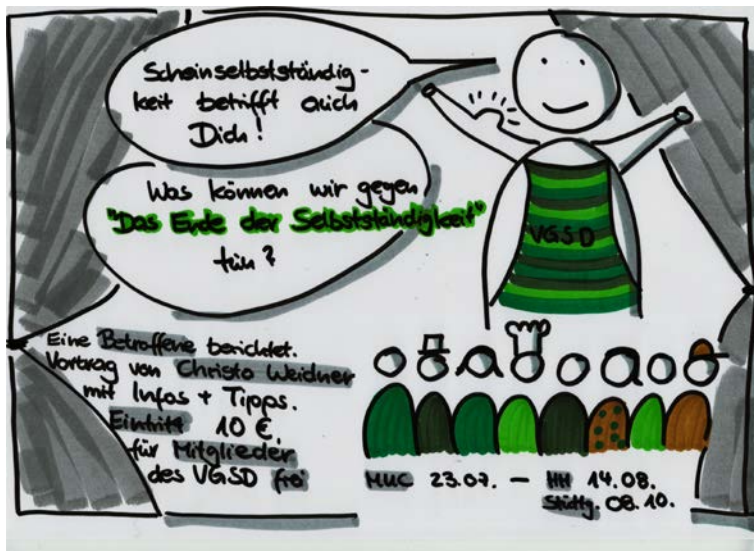 Scheinselbstständig-
keit betrifft auch
Dich!
Was können wir gegen
"Das Ende der Selbstständigkeit"
tun?
VGSD
Eine Betroffene berichtet.
Vortrag von Christa Weidner
mit Infos + Tipps.
Eintritt 10 €,
für Mitglieder
des VGSD frei
MUC 23.07. – HH 14.08.
Stuttg. 08.10.